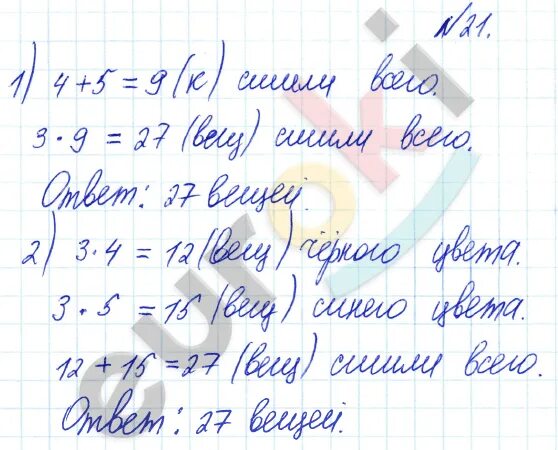 №21.
1) 4+5=9 (к) сшили всего.
3·9 = 27 (вещ) сшили всего.
Ответ: 27 вещей.
2) 3·4 = 12 (вещ) чёрного цвета.
3·5 = 15 (вещ) синего цвета.
12+15=27 (вещ) сшили всего.
Ответ: 27 вещей.
euroki